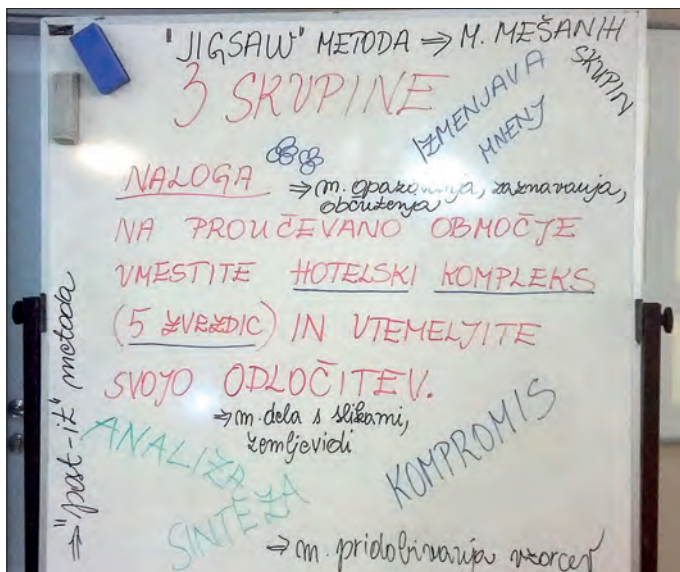 "JIGSAW" METODA ⇒ M. MEŠANIH
SKUPIN
3 SKUPINE
IZMENJAVA
MNENJ
NALOGA
⇒ m. opazovanja, zaznavanja,
občutenja
NA PROUČEVANO OBMOČJE
VMESTITE HOTELSKI KOMPLEKS
(5 ZVEZDIC) IN UTEMELJITE
SVOJO ODLOČITEV.
⇒ m. dela s slikami,
zemljevidi
⇒ "post-it" metoda
ANALIZA
SINTEZA
KOMPROMIS
⇒ m. pridobivanja vzorcev